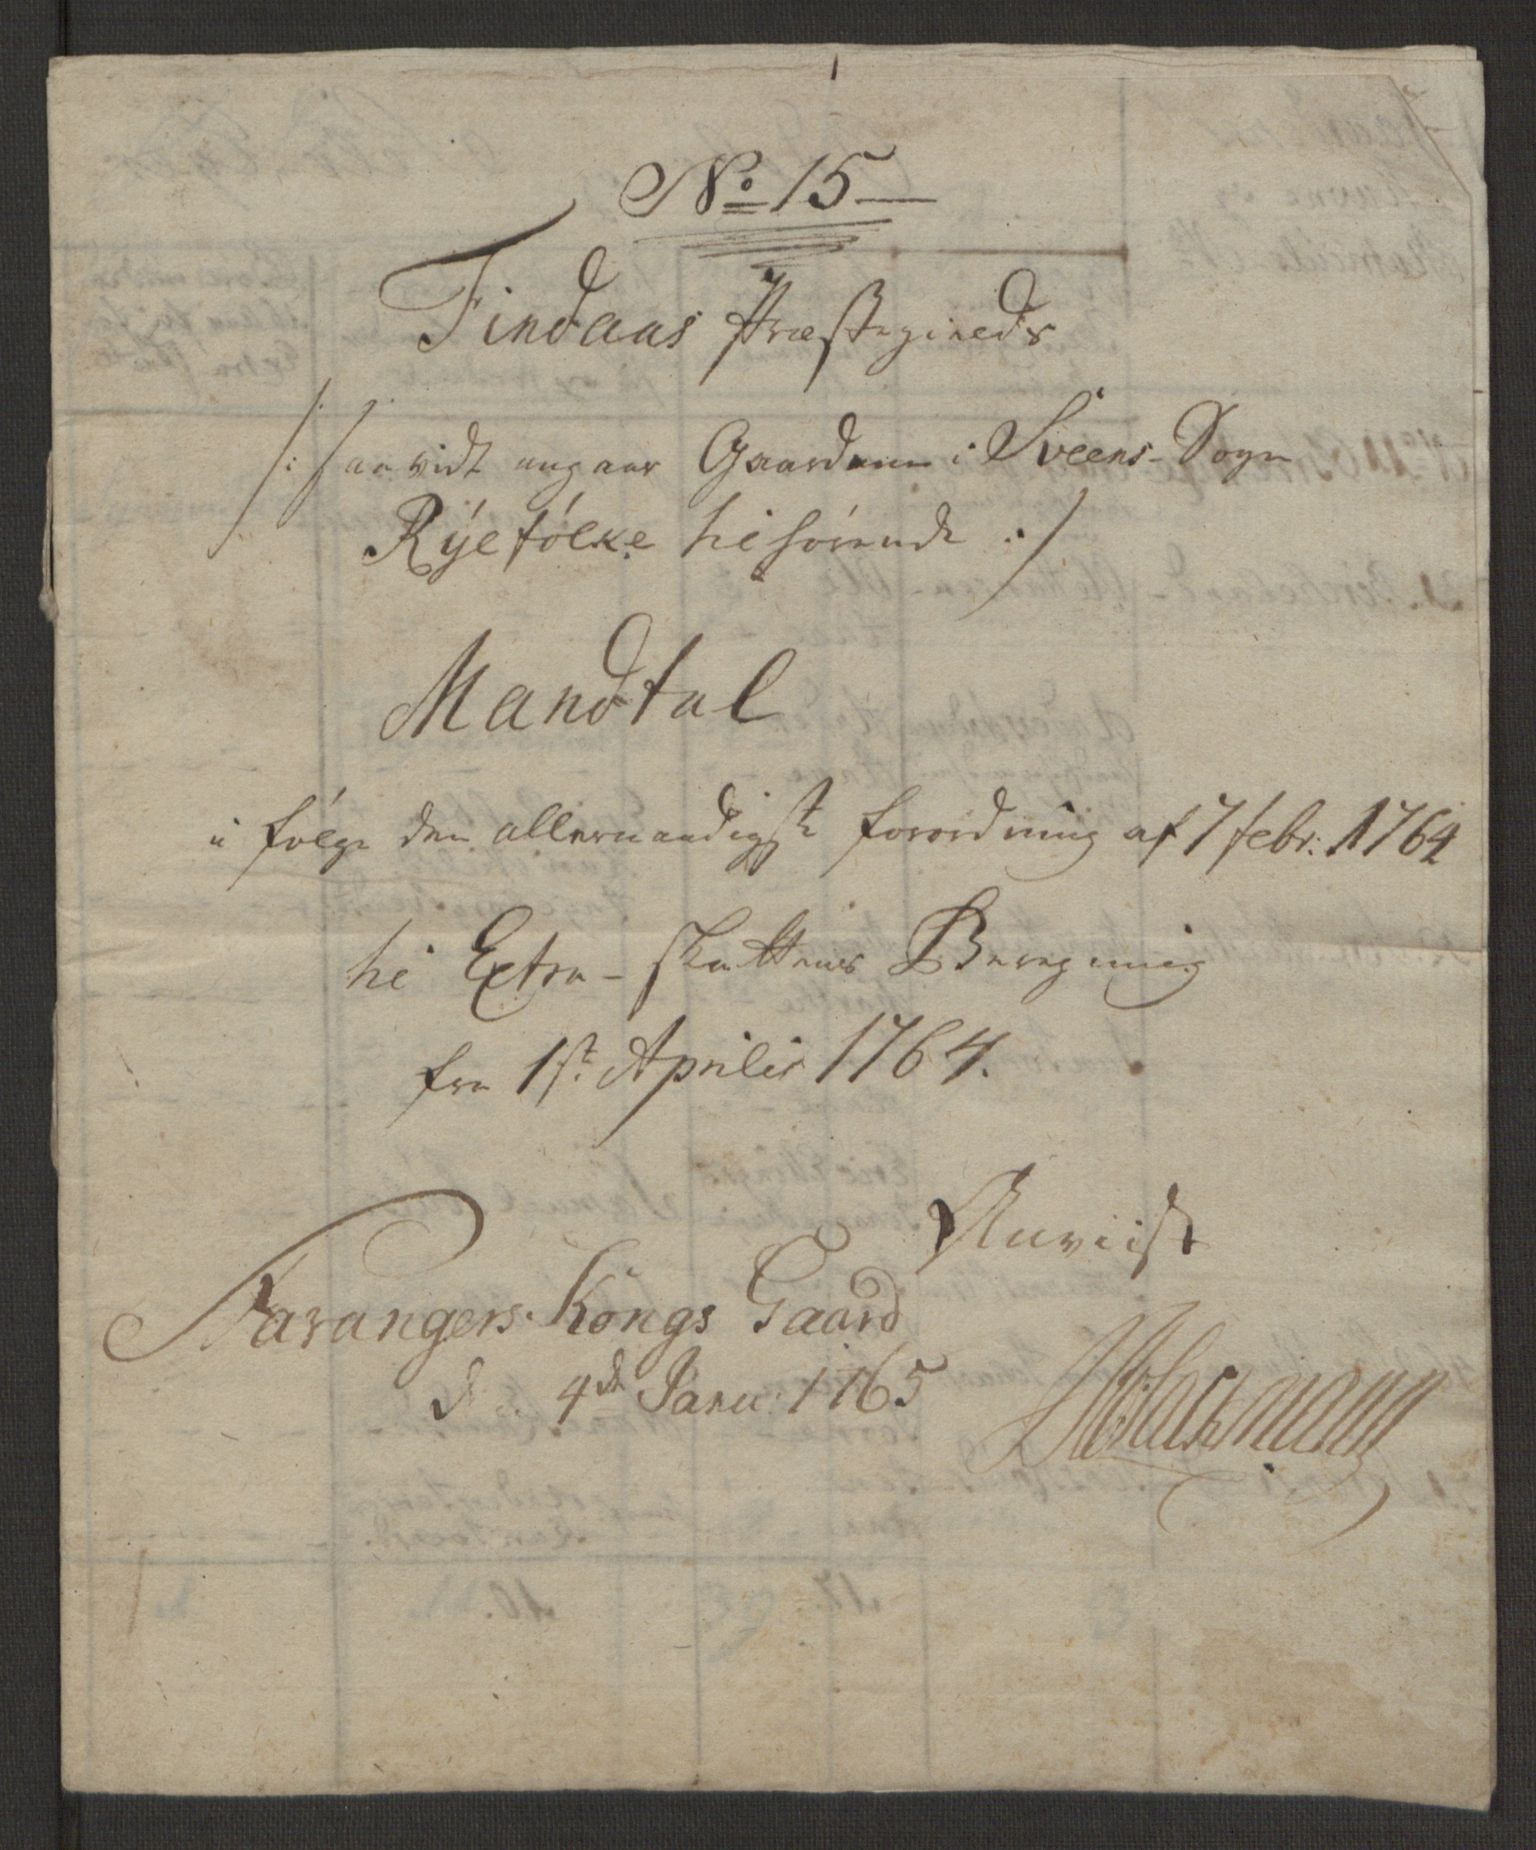 No 15
Findaas Præstegields
/: saavidt angaar Gaardene i Sveens Sogn
Ryefölke tilhörende :/
Mandtal
i fölge den allernaadigste forordning af 7 febr: 1764
til Extra-skattens Beregning
fra 1st Aprilis 1764.
Anviist
Stavangers Kongs Gaard
d. 4de Janu: 1765